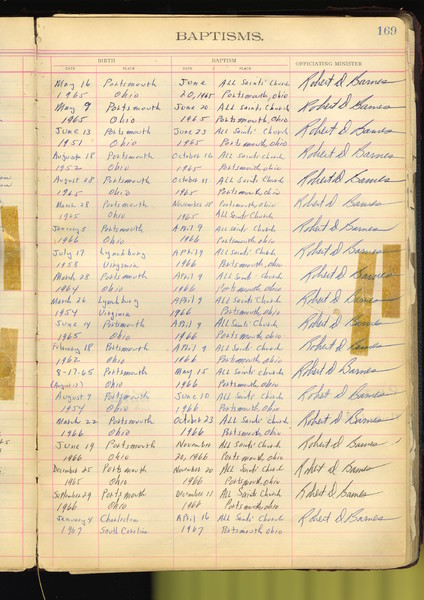 169
BAPTISMS.
BIRTH BAPTISM OFFICIATING MINISTER
DATE PLACE DATE PLACE
May 16 Portsmouth June All Saints Church Robert D. Barnes
1965 Ohio 20, 1965 Portsmouth, ohio
May 9 Portsmouth June 20 All Saints Church Robert D. Barnes
1965 Ohio 1965 Portsmouth, Ohio
June 13 Portsmouth June 23 All Saints' Church Robert D. Barnes
1951 Ohio 1965 Portsmouth ohio
August 18 Portsmouth October 16 All Saints' Church Robert D. Barnes
1952 Ohio 1965 Portsmouth, ohio
August 28 Portsmouth October 31 All Saints' Church Robert D. Barnes
1965 Ohio 1965 Portsmouth, ohio
March 28 Portsmouth November 28 Portsmouth, ohio Robert D. Barnes
1965 Ohio 1965 All Saints' Church
January 5 Portsmouth April 9 All Saints' Church Robert D. Barnes
1966 Ohio 1966 Portsmouth, Ohio
July 17 Lynchburg April 9 All Saints' Church Robert D. Barnes
1958 Virginia 1966 Portsmouth, ohio
March 28 Portsmouth April 9 All Saints' Church Robert D. Barnes
1964 Ohio 1966 Portsmouth, ohio
March 26 Lynchburg April 9 All Saints' Church Robert D. Barnes
1954 Virginia 1966 Portsmouth, ohio
June 14 Portsmouth April 9 All Saints' Church Robert D. Barnes
1965 Ohio 1966 Portsmouth, ohio
February 18 Portsmouth April 9 All Saints' Church Robert D. Barnes
1962 Ohio 1966 Portsmouth, ohio
8-17-65 Portsmouth May 15 All Saints' Church Robert D. Barnes
(August 17) Ohio 1966 Portsmouth, ohio
August 7 Portsmouth June 10 All Saints' Church Robert D. Barnes
1954 Ohio 1966 Portsmouth, ohio
March 22 Portsmouth October 23 All Saints' Church Robert D. Barnes
1966 Ohio 1966 Portsmouth, Ohio
June 19 Portsmouth November All Saints' Church Robert D. Barnes
1966 Ohio 20, 1966 Portsmouth, ohio
December 25 Portsmouth November 20 All Saints' Church Robert D. Barnes
1965 Ohio 1966 Portsmouth, ohio
September 29 Portsmouth December 11 All Saints Church Robert D. Barnes
1966 Ohio 1966 Portsmouth, ohio
January 4 Charleston April 16 All Saints' Church Robert D. Barnes
1967 South Carolina 1967 Portsmouth, ohio